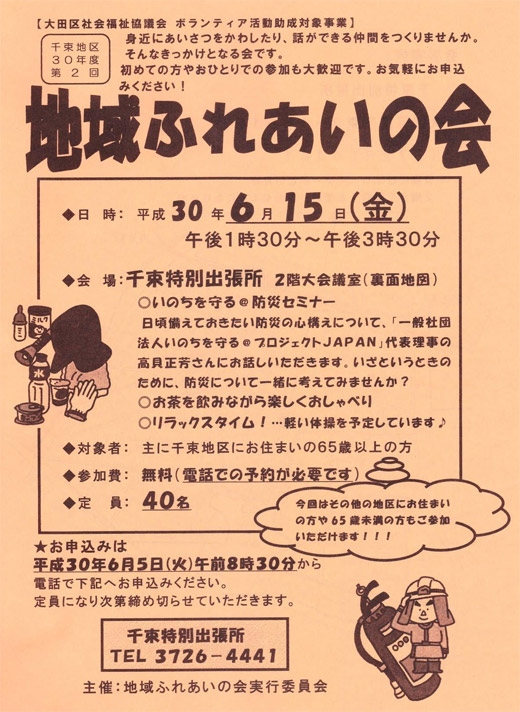 【大田区社会福祉協議会 ボランティア活動助成対象事業】
千束地区
30年度
第2回
身近にあいさつをかわしたり、話ができる仲間をつくりませんか。
そんなきっかけとなる会です。
初めての方やおひとりでの参加も大歓迎です。お気軽にお申込
みください!
地域ふれあいの会
◆日 時: 平成 30 年 6 月 15 日(金)
午後1時30分~午後3時30分
◆会 場:千束特別出張所 2階大会議室(裏面地図)
○いのちを守る@防災セミナー
日頃備えておきたい防災の心構えについて、「一般社団
法人いのちを守る@プロジェクトJAPAN」代表理事の
高貝正芳さんにお話しいただきます。いざというときの
ために、防災について一緒に考えてみませんか?
○お茶を飲みながら楽しくおしゃべり
○リラックスタイム!…軽い体操を予定しています♪
◆対象者: 主に千束地区にお住まいの65歳以上の方
◆参加費: 無料(電話での予約が必要です)
◆定 員: 40名
ミルク
水
今回はその他の地区にお住まい
の方や65歳未満の方もご参加
いただけます!!!
★お申込みは
平成30年6月5日(火)午前8時30分から
電話で下記へお申込みください。
定員になり次第締め切らせていただきます。
千束特別出張所
TEL 3726-4441
主催:地域ふれあいの会実行委員会